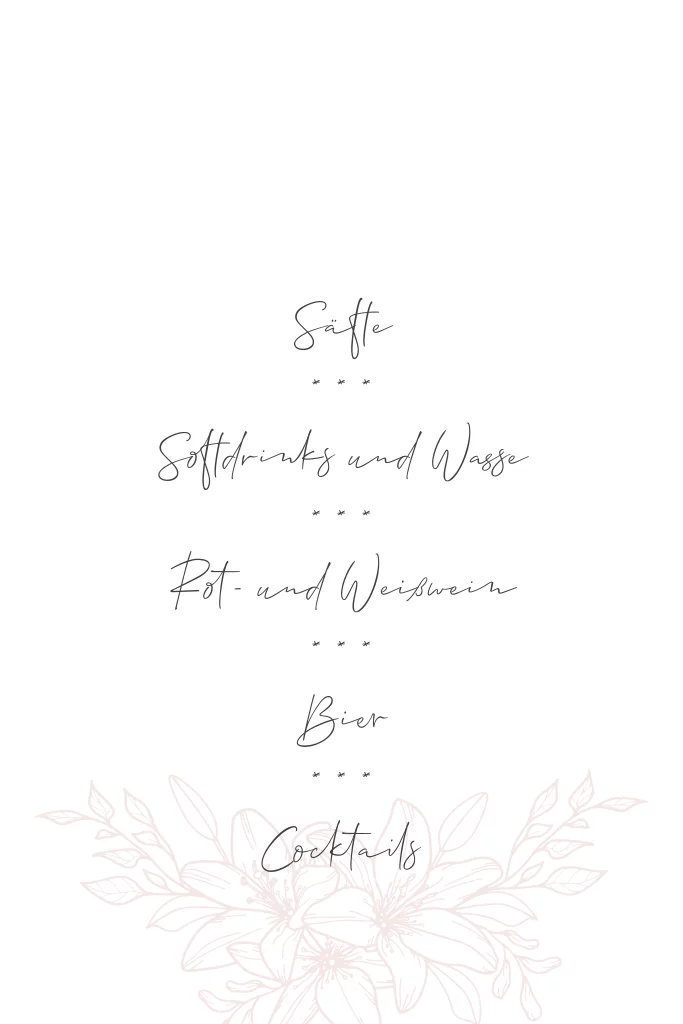 Säfte
* * *
Softdrinks und Wasse
* * *
Rot- und Weißwein
* * *
Bier
* * *
Cocktails